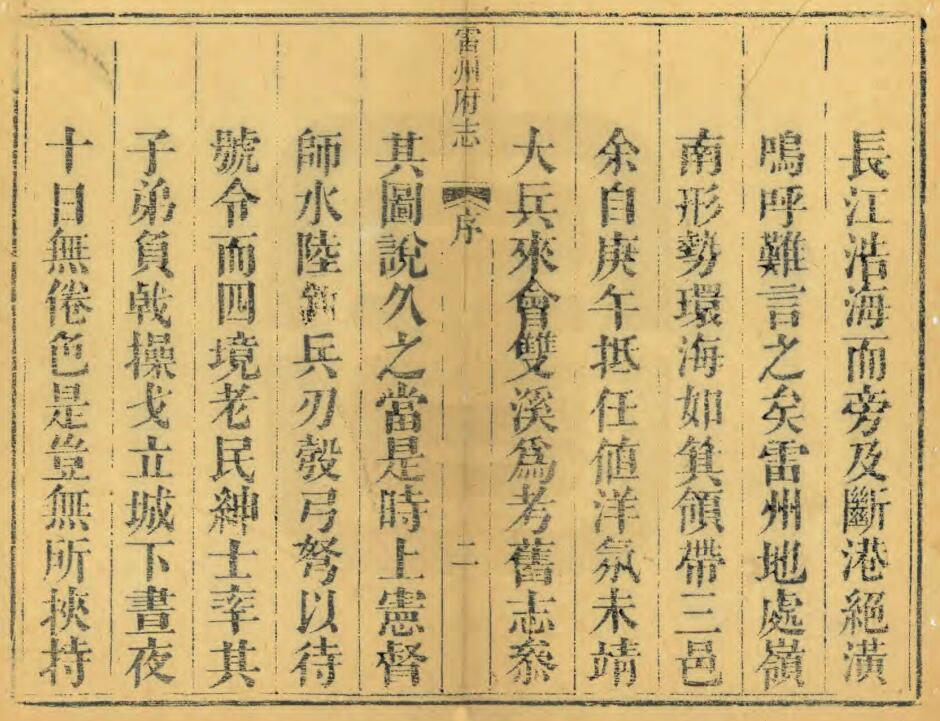 長江浩海而旁及斷港絕潢
嗚呼難言之矣雷州地處嶺
南形勢環海如箕領帶三邑
余自庚午抵任值洋氛未靖
大兵來會雙溪爲考舊志叅
雷州府志 序 二
其圖說久之當是時上憲督
師水陸劍兵刃彀弓弩以待
號令而四境老民紳士率其
子弟負戟操戈立城下晝夜
十日無倦色是豈無所挾持